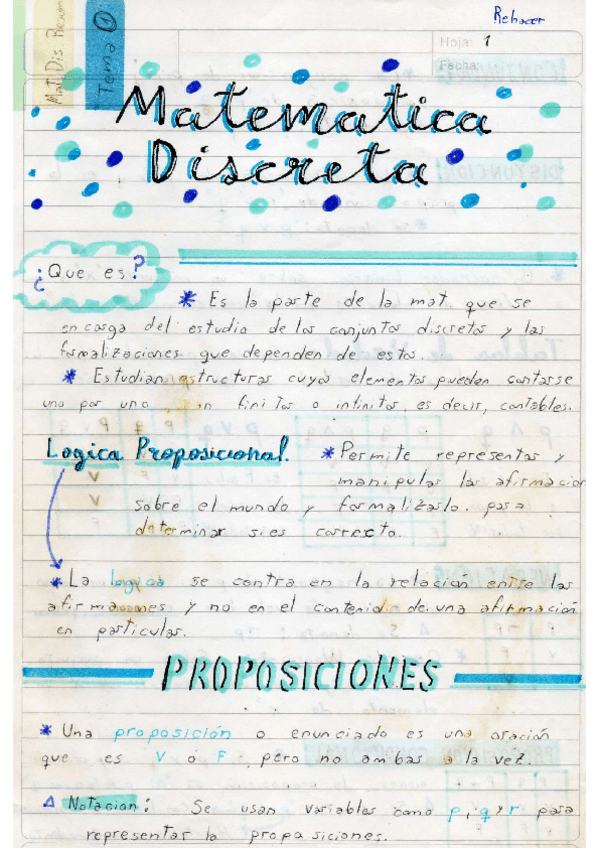 Rehacer
Mat Dis Resum
Tema 1
Hoja: 1
Fecha:
Matematica
Discreta
¿Que es?
* Es la parte de la mat que se
encarga del estudio de los conjuntos discretos y las
formalizaciones que dependen de estos.
* Estudian estructuras cuyos elementos pueden contarse
uno por uno, son finitos o infinitos, es decir, contables.
Logica Proposicional. * Permite representar y
manipular las afirmacion
sobre el mundo y formalizarlo. para
determinar si es correcto.
* La logica se contra en la relación entre las
afirmaciones y no en el contenido de una afirmación
en particular.
PROPOSICIONES
* Una proposición o enunciado es una oración
que es V o F, pero no ambas a la vez.
Δ Notacion: Se usan variables como p, q y r para
representar la proposiciones.